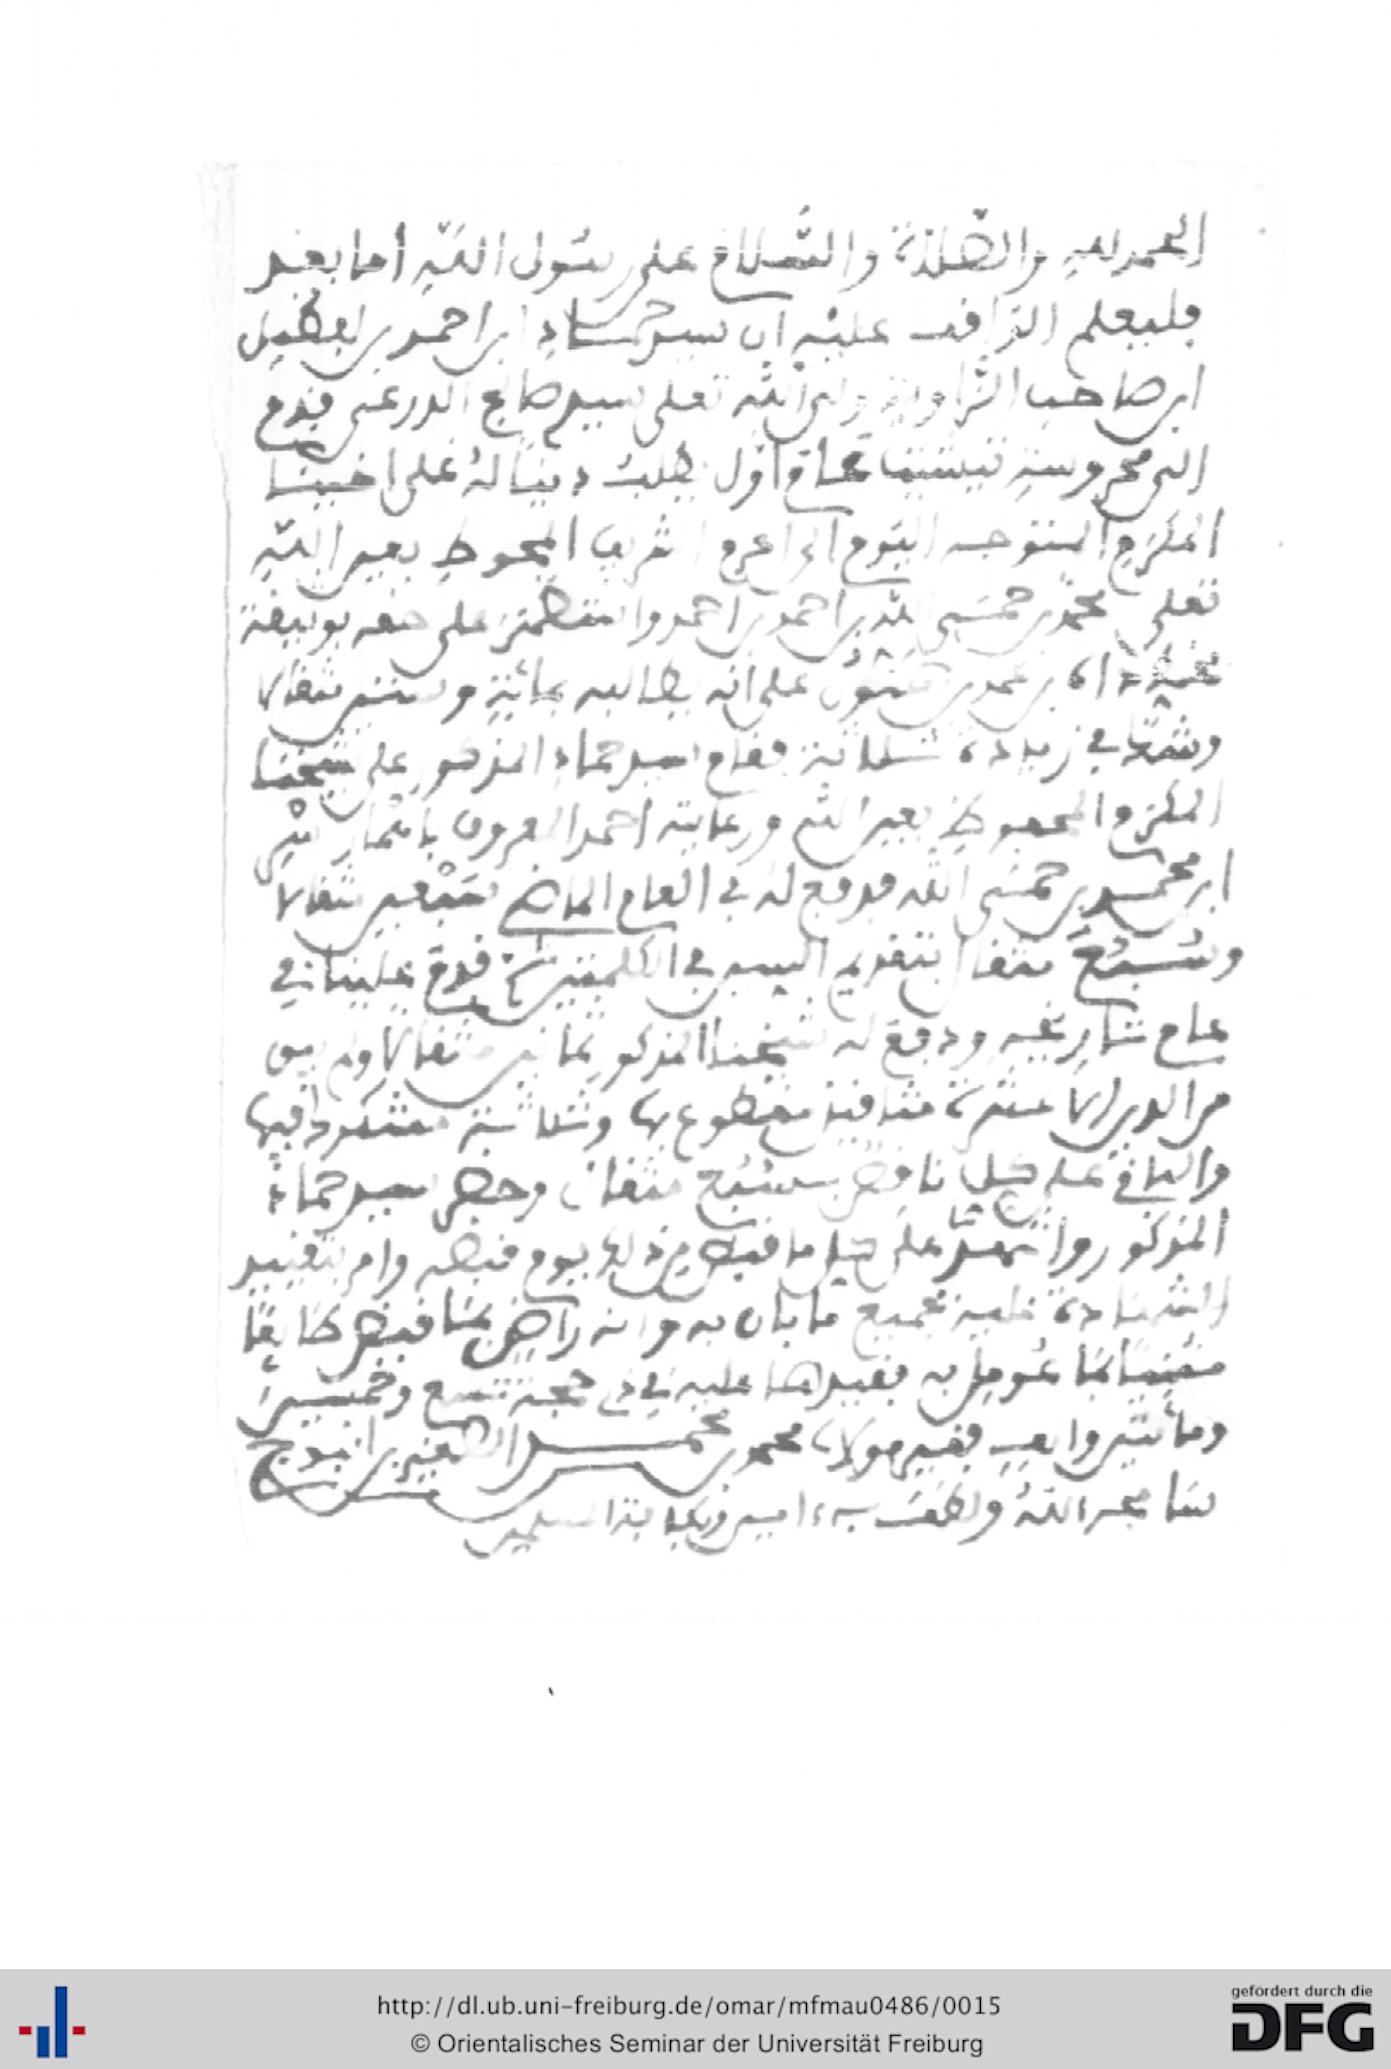 الحمد لله والصلاة والسلام على رسول الله أما بعد
فليعلم الواقف عليه ان سيد حماد ابن احمد بن
ابن صاحب الزاوية ولي الله تعلى سيد صالح الدرعي قدم
الى محروسة تيشيت عام اول يطلب دينا له على اخينا
المكرم المتوجه اليوم الى الشريف المحوط بعين الله
تعلى محمد بن حمى الله بن احمد بن احمد واستظهر على حقه بوثيقة
بن محمد بن على انه يطالبه بمائة وستين مثقالا
في زيادة ثلاثة فقام سيد حماد المذكور على شيخنا
المكرم المحفوظ بعين الله ورعايته احمد المعروف
ابن محمد بن حمى الله فدفع له في العام الماضي سبعين مثقالا
وسبع مثقال بتقديم السين في الكلمتين ثم قدم علينا في
عام تاريخه ودفع له شيخنا المذكور ثمانين مثقالا ولم يبق
من الدين الا عشرة مثاقيل مقطوع بها وثلاثة مشكوك فيها
والباقي على كل ناقص بسبع مثقال وحضر سيد حماد
المذكور واشهد على كل ما قبض من ذلك يوم قبضه وامر بتقييد
الشهادة عليه بجميع ما بان به وانه راض بما قبض طايعا
بما عومل به فقيدها عليه في ذي حجة تسع وخمسين
ومائتين والف فقير مولاه محمد بن محمد الصغير بن انبوج
سامحه الله ولطف به ءامين وبكافة المسلمين
http://dl.ub.uni-freiburg.de/omar/mfmau0486/0015
© Orientalisches Seminar der Universität Freiburg
gefördert durch die
DFG